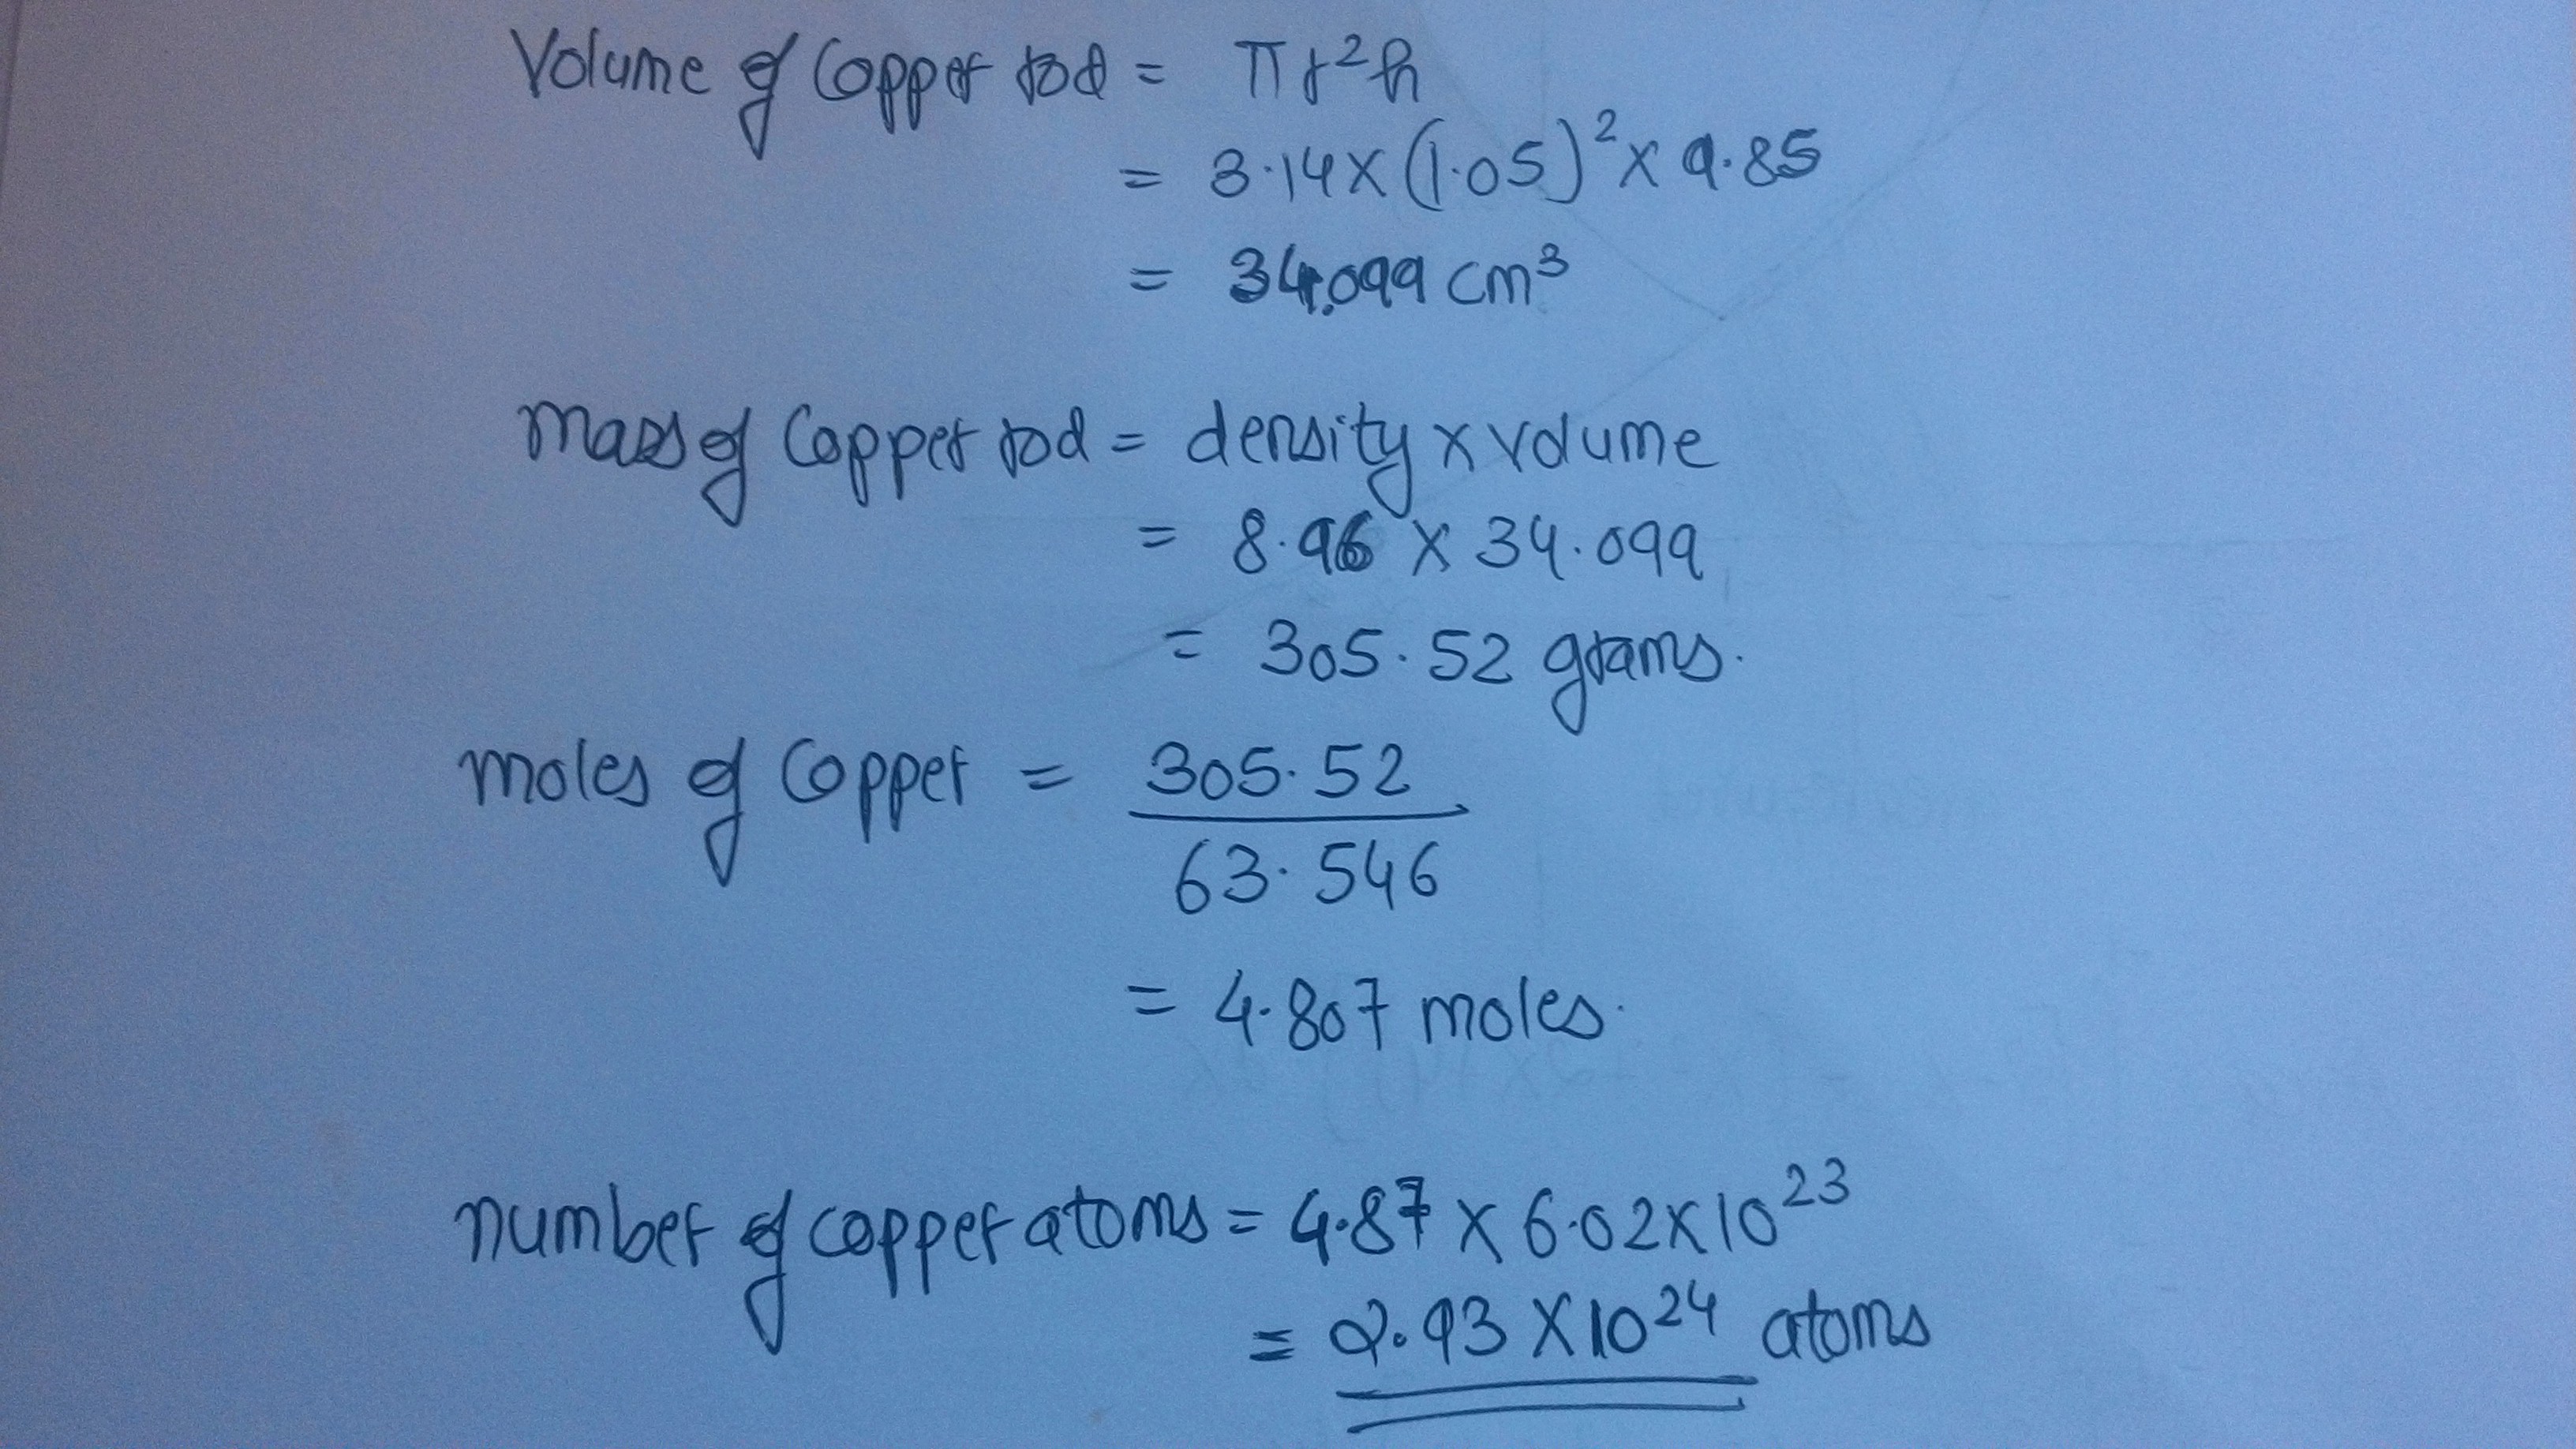 Volume of Copper rod = πr²h
= 3.14 x (1.05)² x 9.85
= 34.099 cm³
mass of Copper rod = density x volume
= 8.96 x 34.099
= 305.52 grams.
moles of Copper = 305.52
63.546
= 4.807 moles.
number of copper atoms = 4.87 x 6.02 x 10²³
= 2.93 x 10²⁴ atoms